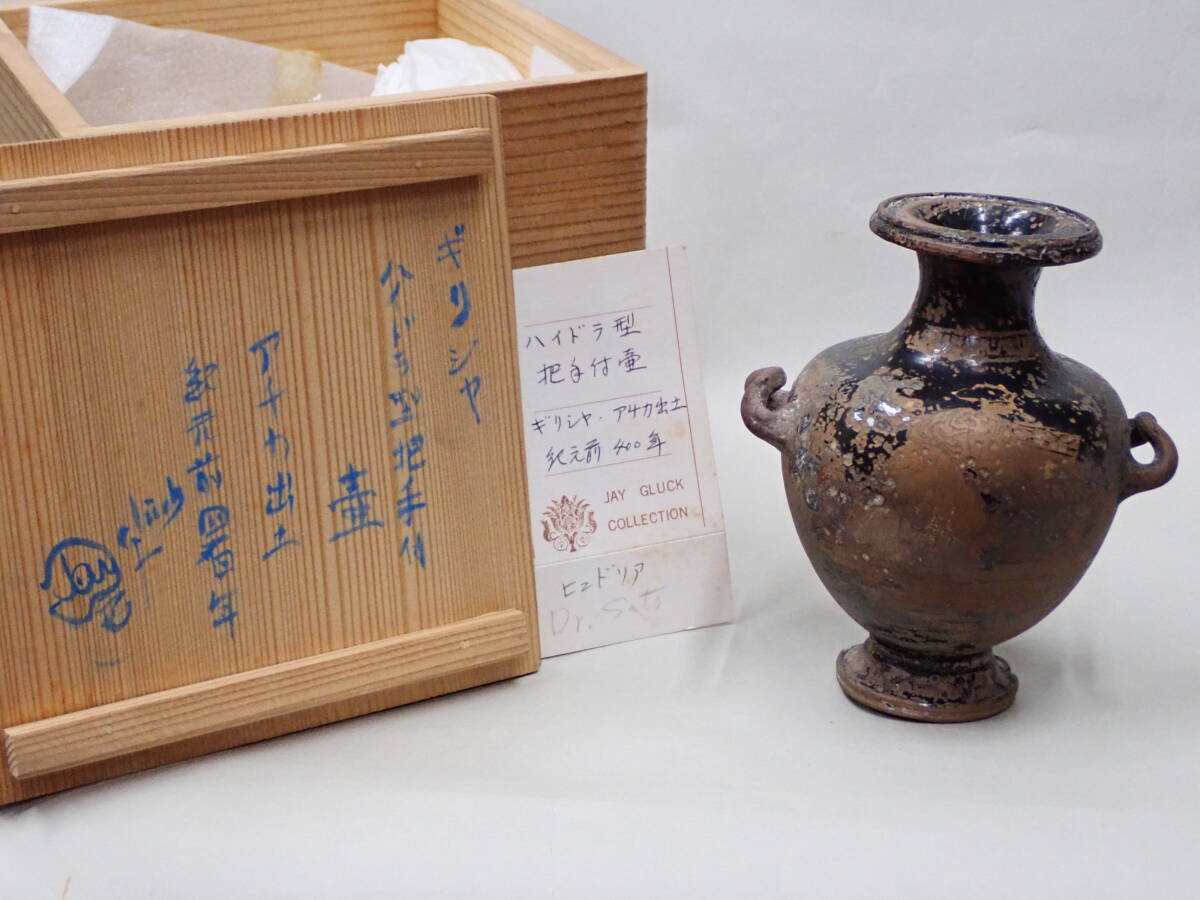 ギリシャ
ハイドラ型把手付
壷
アチカ出土
紀元前四百年
Jay
ハイドラ型
把手付壷
ギリシャ・アチカ出土
紀元前400年
JAY GLUCK
COLLECTION
ヒュドリア
Dr. Sato